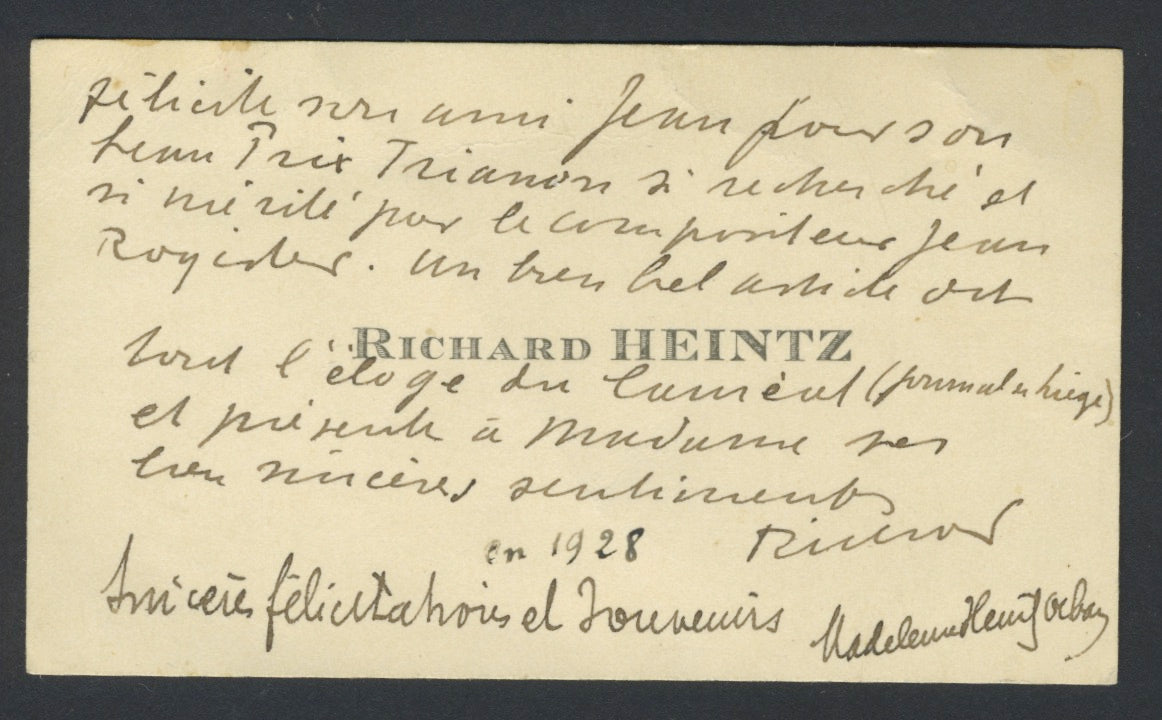 félicite son ami Jean pour son
beau Prix Trianon si recherché et
si mérité par le compositeur Jean
Rogister. Un bien bel article dit
RICHARD HEINTZ
tout l'éloge du lauréat (journal de Liège)
et présente à Madame ses
bien sincères sentiments
en 1928 Richard
Sincères félicitations et Souvenirs
Madeleine Heintz Orban